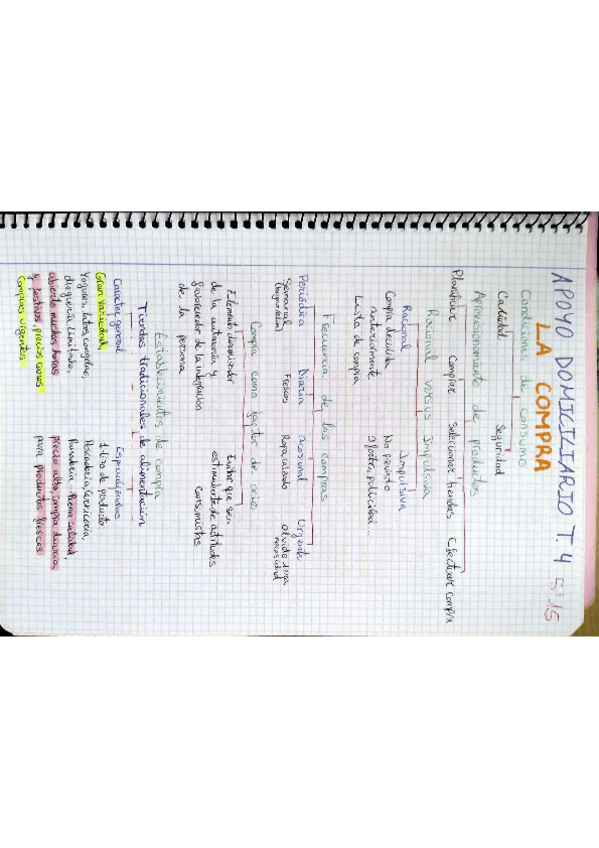 APOYO DOMICILIARIO T.4 5'15
LA COMPRA
Condiciones de consumo
Calidad Seguridad
Aprovisionamiento de productos
Planificar Comprar Seleccionar tiendas Efectuar compra
Racional versus Impulsiva
Racional Impulsiva
Compra decidida No previsto
anteriormente Ofertas, publicidad...
Lista de compra
Frecuencia de las compras
Periódica Diaria Ocasional Urgente
Semanal Frescos Ropa, calzado Olvido
necesidad
Compra como factor de ocio
Elemento dinamizador Evitar que sea
de la autonomía y estimulante de actitudes
favorecedor de la integración consumistas
de la persona
Establecimientos de compra
Tiendas tradicionales de alimentación
Carácter general Especializadas
Gran variedad, 1 tipo de producto
Yogures, latas, congelao, Pescadería, Carnicería,
droguería, limitado, Panadería
abierto muchas horas precio alto, compra diaria,
y festivos, precios caros para productos frescos
Compras urgentes